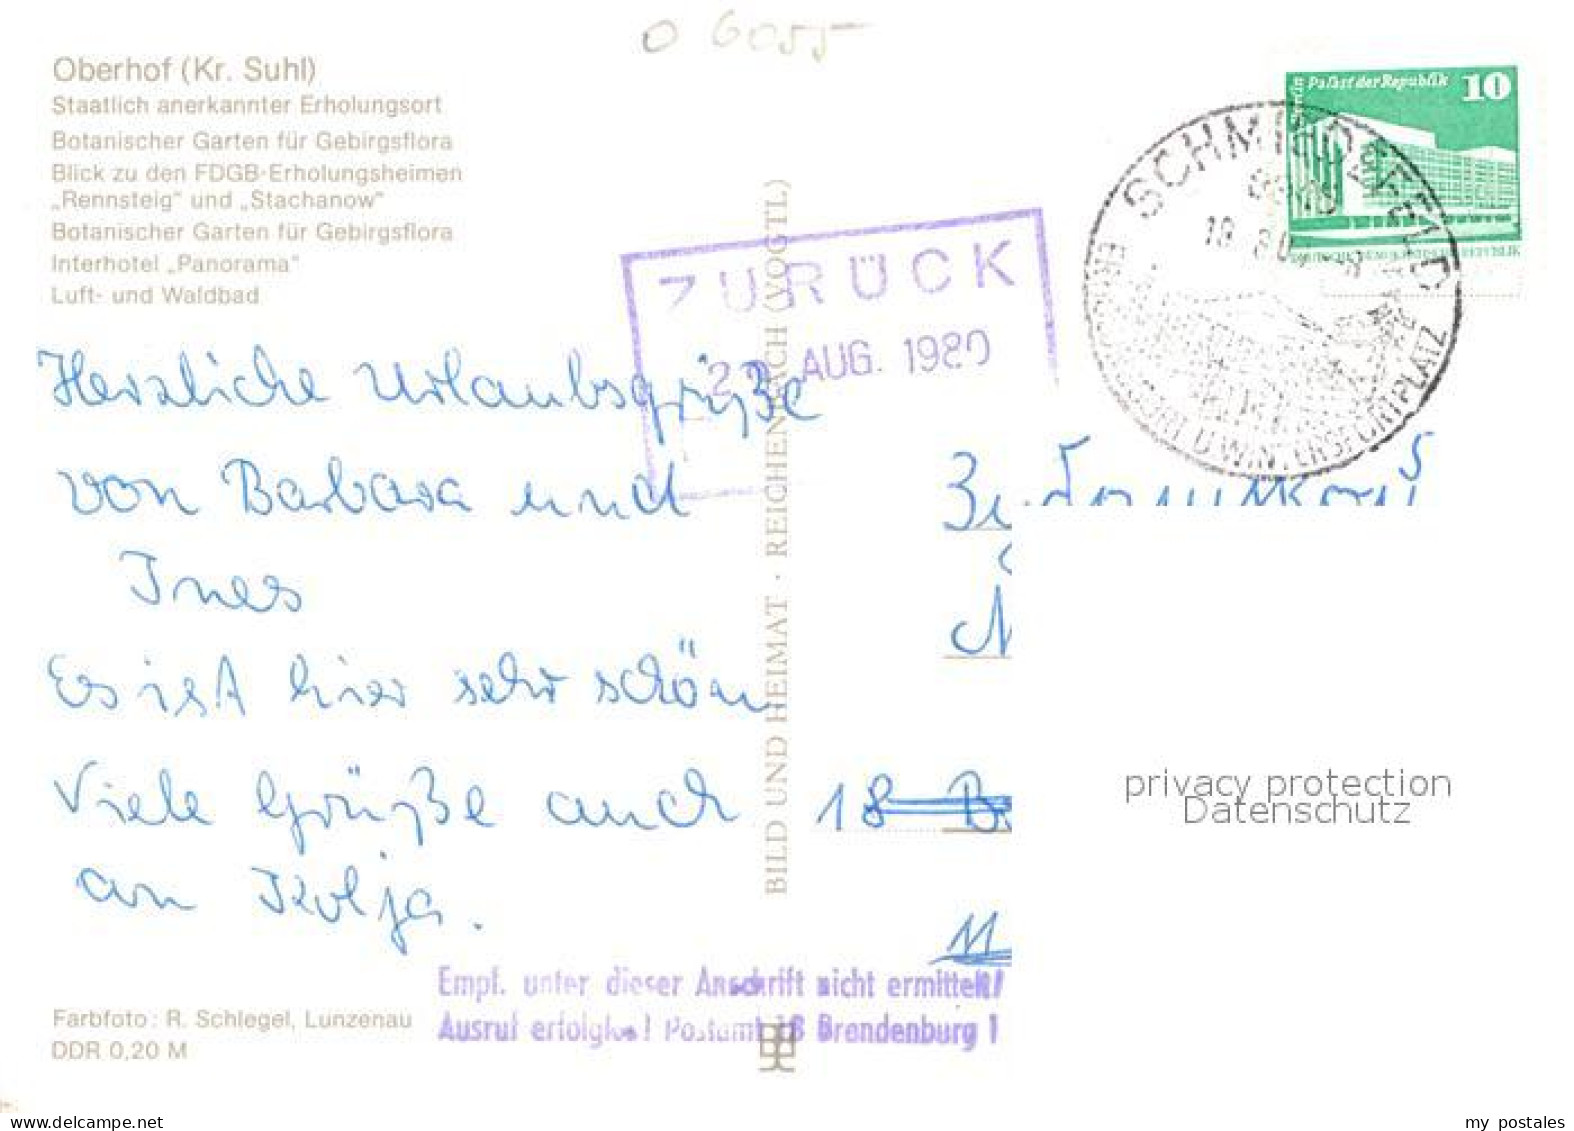 0 6055
Oberhof (Kr. Suhl)
Staatlich anerkannter Erholungsort
Botanischer Garten für Gebirgsflora
Blick zu den FDGB-Erholungsheimen
„Rennsteig“ und „Stachanow“
Botanischer Garten für Gebirgsflora
Interhotel „Panorama“
Luft- und Waldbad
Palast der Republik 10
SCHMIEDEFELD
WINTERSPORTPLATZ
ZURÜCK
AUG. 1980
Herzliche Urlaubsgrüße
von Barbara und
Ines
Es ist hier sehr schön
Viele Grüße auch
an Kolja.
BILD UND HEIMAT · REICHENBACH (VOGTL)
18
privacy protection
Datenschutz
Empf. unter dieser Anschrift nicht ermittelt!
Ausruf erfolglos! Postamt 18 Brandenburg 1
Farbfoto: R. Schlegel, Lunzenau
DDR 0,20 M
www.delcampe.net
my postales